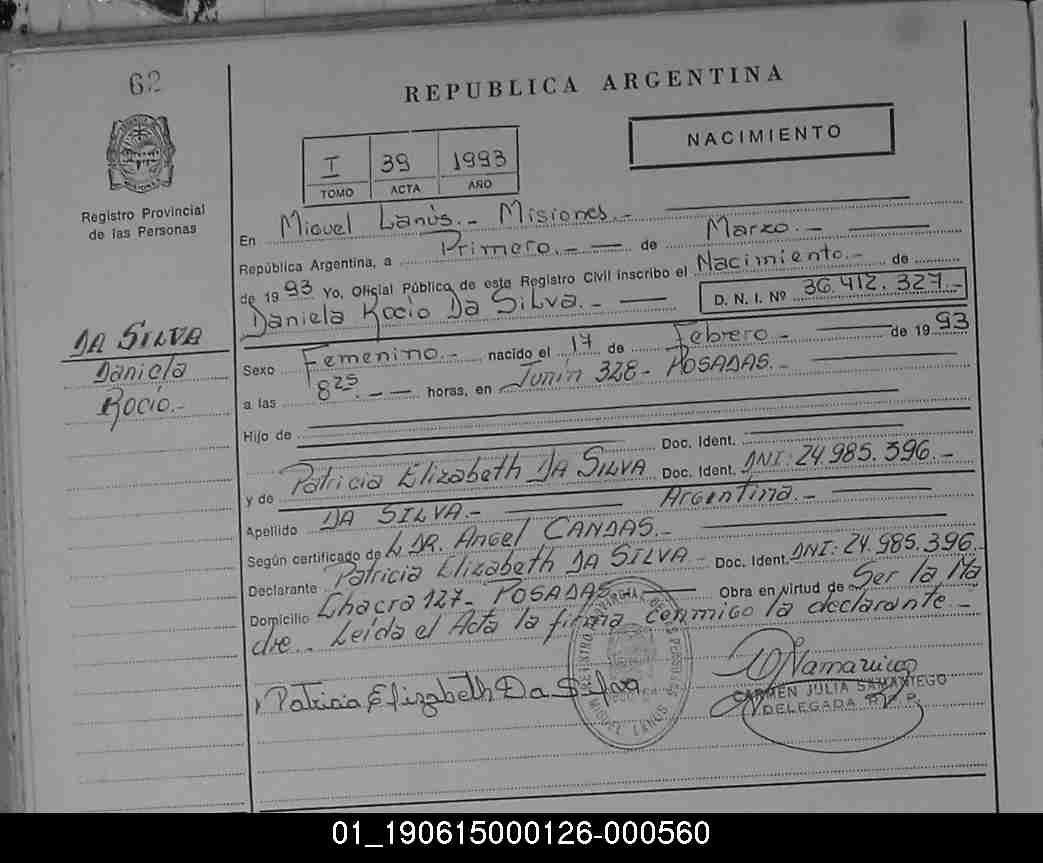 62
REPUBLICA ARGENTINA
NACIMIENTO
I 39 1993
TOMO ACTA AÑO
Registro Provincial
de las Personas
En Miguel Lanús.- Misiones.-
República Argentina, a Primero.- de Marzo.-
de 1993 Yo, Oficial Público de este Registro Civil inscribo el Nacimiento.- de
Daniela Rocio Da Silva.- D. N. I. Nº 36.412.327.-
DA SILVA
Daniela
Rocio.-
Sexo Femenino.- nacido el 17 de Febrero.- de 1993
a las 8 25.- horas, en Junín 328- POSADAS.-
Hijo de
Doc. Ident.
y de Patricia Elizabeth DA SILVA Doc. Ident. DNI: 24.985.396.-
Apellido DA SILVA.- Argentina.-
Según certificado de DR. Angel CANDAS.-
Declarante Patricia Elizabeth DA SILVA.- Doc. Ident. DNI: 24.985.396.
Domicilio Chacra 127- POSADAS Obra en virtud de Ser la Ma
dre.. Leída el Acta la firma conmigo la declarante.-
Patricia Elizabeth Da Silva
MIGUEL LANUS
CARMEN JULIA SAMANIEGO
DELEGADA R. P. P.
01_190615000126-000560